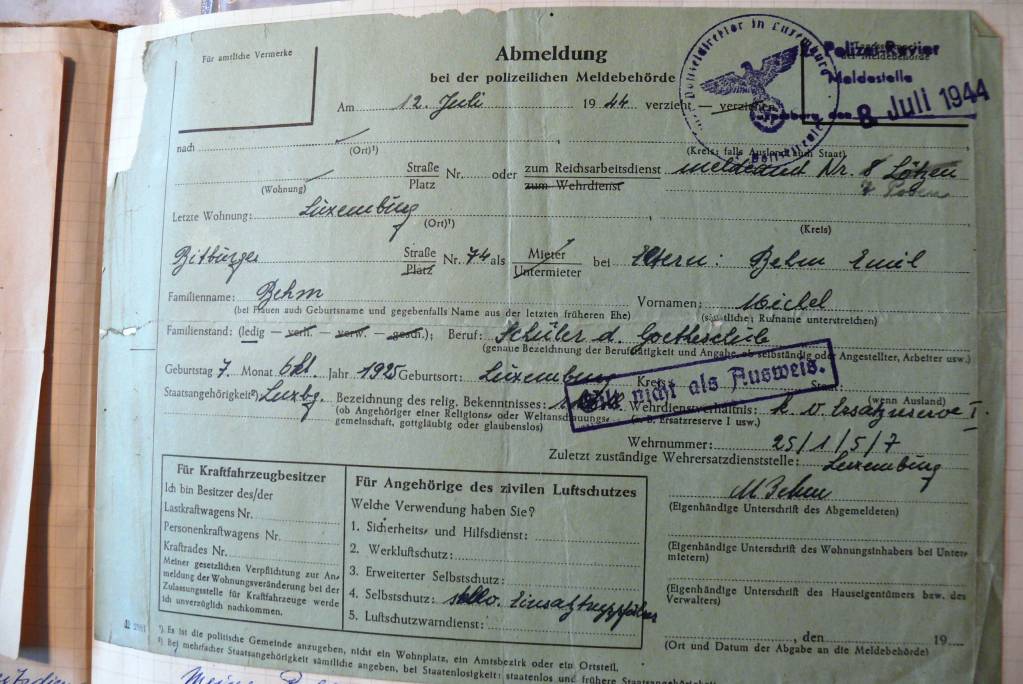 Für amtliche Vermerke
Abmeldung
bei der polizeilichen Meldebehörde
Polizei-Revier
Meldestelle
8. Juli 1944
Am 12. Juli 1944 verzieht — verziehen
nach (Ort)¹) (Kreis; falls Ausland auch Staat)
(Wohnung) Straße Platz Nr. oder zum Reichsarbeitsdienst zum Wehrdienst meldeamt Nr. 8 Lötzen
Letzte Wohnung: Luxemburg (Ort)¹) (Kreis)
Bitburger Straße Platz Nr. 74 als Mieter Untermieter bei Eltern: Behm Emil
Familienname: Behm Vornamen: Michel
(bei Frauen auch Geburtsname und gegebenfalls Name aus der letzten früheren Ehe) (sämtliche; Rufname unterstreichen)
Familienstand: (ledig — verh. — verw. — gesch.); Beruf: Schüler d. Goetheschule
(genaue Bezeichnung der Berufstätigkeit und Angabe, ob selbständig oder Angestellter, Arbeiter usw.)
Geburtstag 7. Monat Okt. Jahr 1925 Geburtsort: Luxemburg Kreis: Staat:
(wenn Ausland)
Gilt nicht als Ausweis.
Staatsangehörigkeit²) Luxbg. Bezeichnung des relig. Bekenntnisses: Wehrdienstverhältnis: k. v. Ersatzreserve I.
(ob Angehöriger einer Religions- oder Weltanschauungs- (z. B. Ersatzreserve I usw.)
gemeinschaft, gottgläubig oder glaubenslos)
Wehrnummer: 25/1/5/7
Zuletzt zuständige Wehrersatzdienststelle: Luxemburg
M Behm
(Eigenhändige Unterschrift des Abgemeldeten)
(Eigenhändige Unterschrift des Wohnungsinhabers bei Untermietern)
(Eigenhändige Unterschrift des Hauseigentümers bzw. des Verwalters)
, den 19
(Ort und Datum der Abgabe an die Meldebehörde)
Für Kraftfahrzeugbesitzer
Ich bin Besitzer des/der
Lastkraftwagens Nr.
Personenkraftwagens Nr.
Kraftrades Nr.
Meiner gesetzlichen Verpflichtung zur An-
meldung der Wohnungsveränderung bei der
Zulassungsstelle für Kraftfahrzeuge werde
ich unverzüglich nachkommen.
Für Angehörige des zivilen Luftschutzes
Welche Verwendung haben Sie?
1. Sicherheits- und Hilfsdienst:
2. Werkluftschutz:
3. Erweiterter Selbstschutz:
4. Selbstschutz: stellv.
5. Luftschutzwarndienst:
¹) Es ist die politische Gemeinde anzugeben, nicht ein Wohnplatz, ein Amtsbezirk oder ein Ortsteil.
²) Bei mehrfacher Staatsangehörigkeit sämtliche angeben, bei Staatenlosigkeit: staatenlos und frühere Staatsangehörigkeit